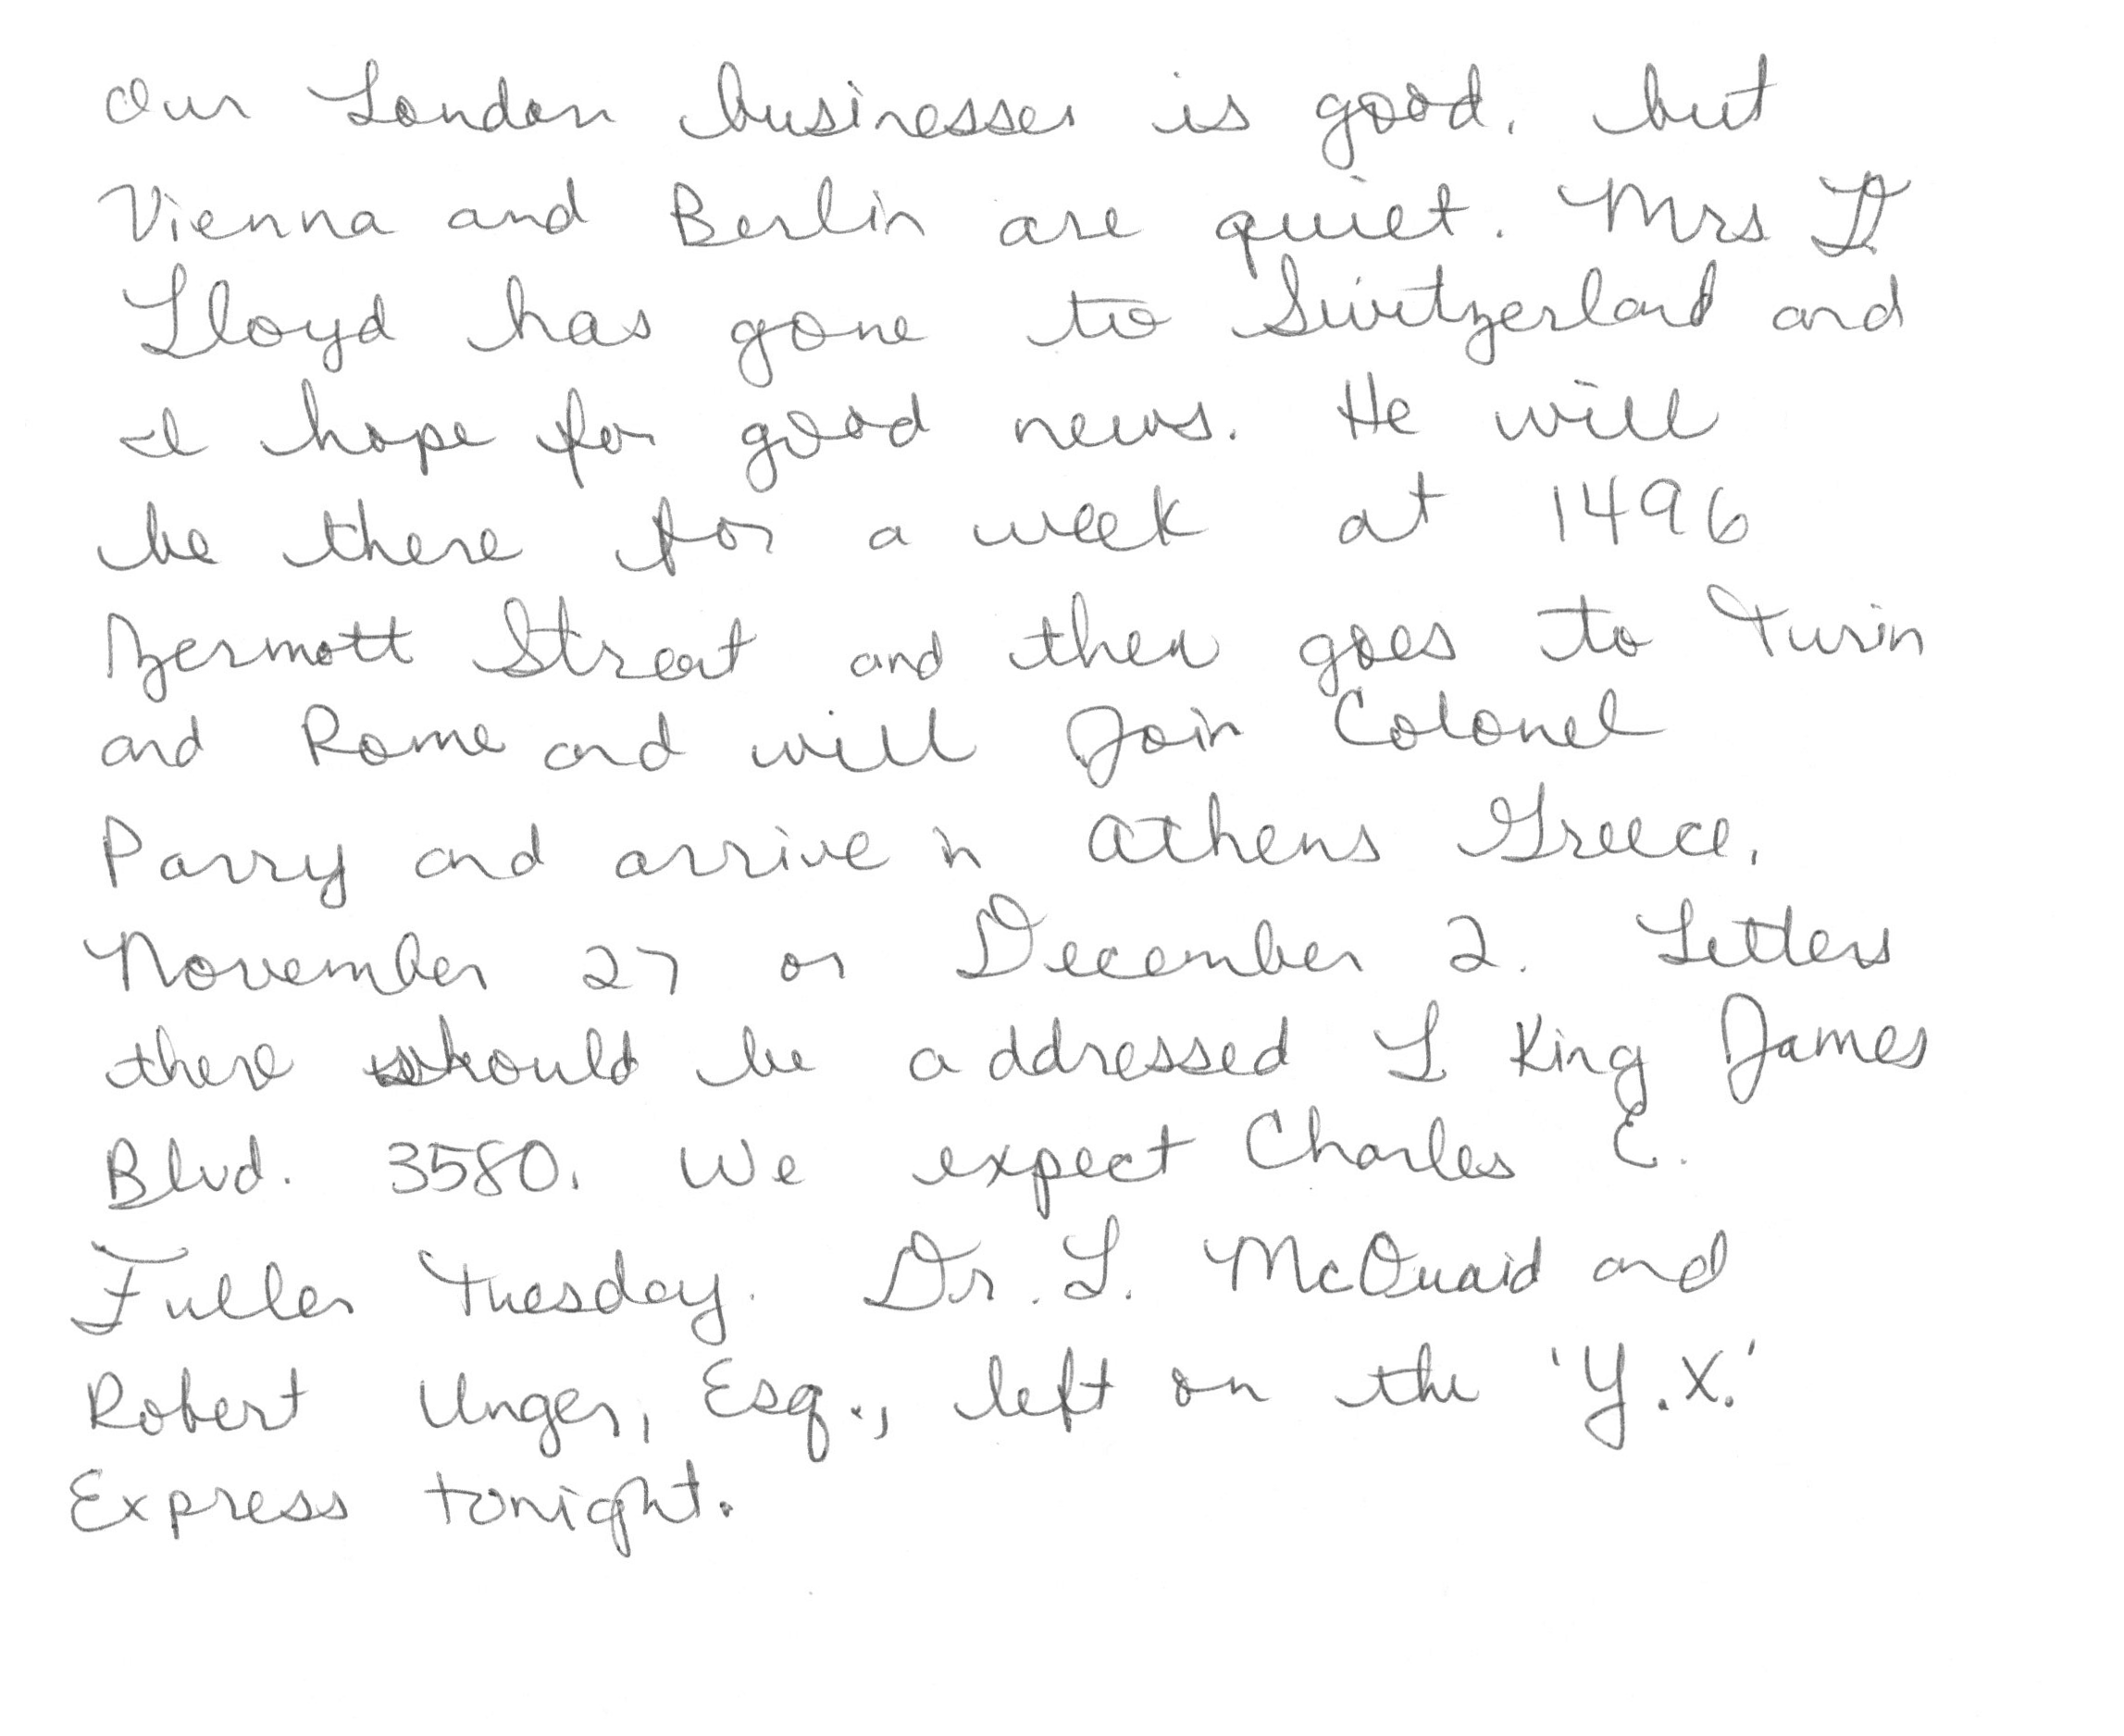 Our London businesses is good, but
Vienna and Berlin are quiet. Mrs D.
Lloyd has gone to Switzerland and
I hope for good news. He will
be there for a week at 1496
Zermott Street and then goes to Turin
and Rome and will Join Colonel
Parry and arrive in Athens Greece,
November 27 or December 2. Letters
there should be addressed L King James
Blvd. 3580. We expect Charles E.
Fuller Tuesday. Dr. L. McQuaid and
Robert Unger, Esq., left on the 'Y.X.'
Express tonight.